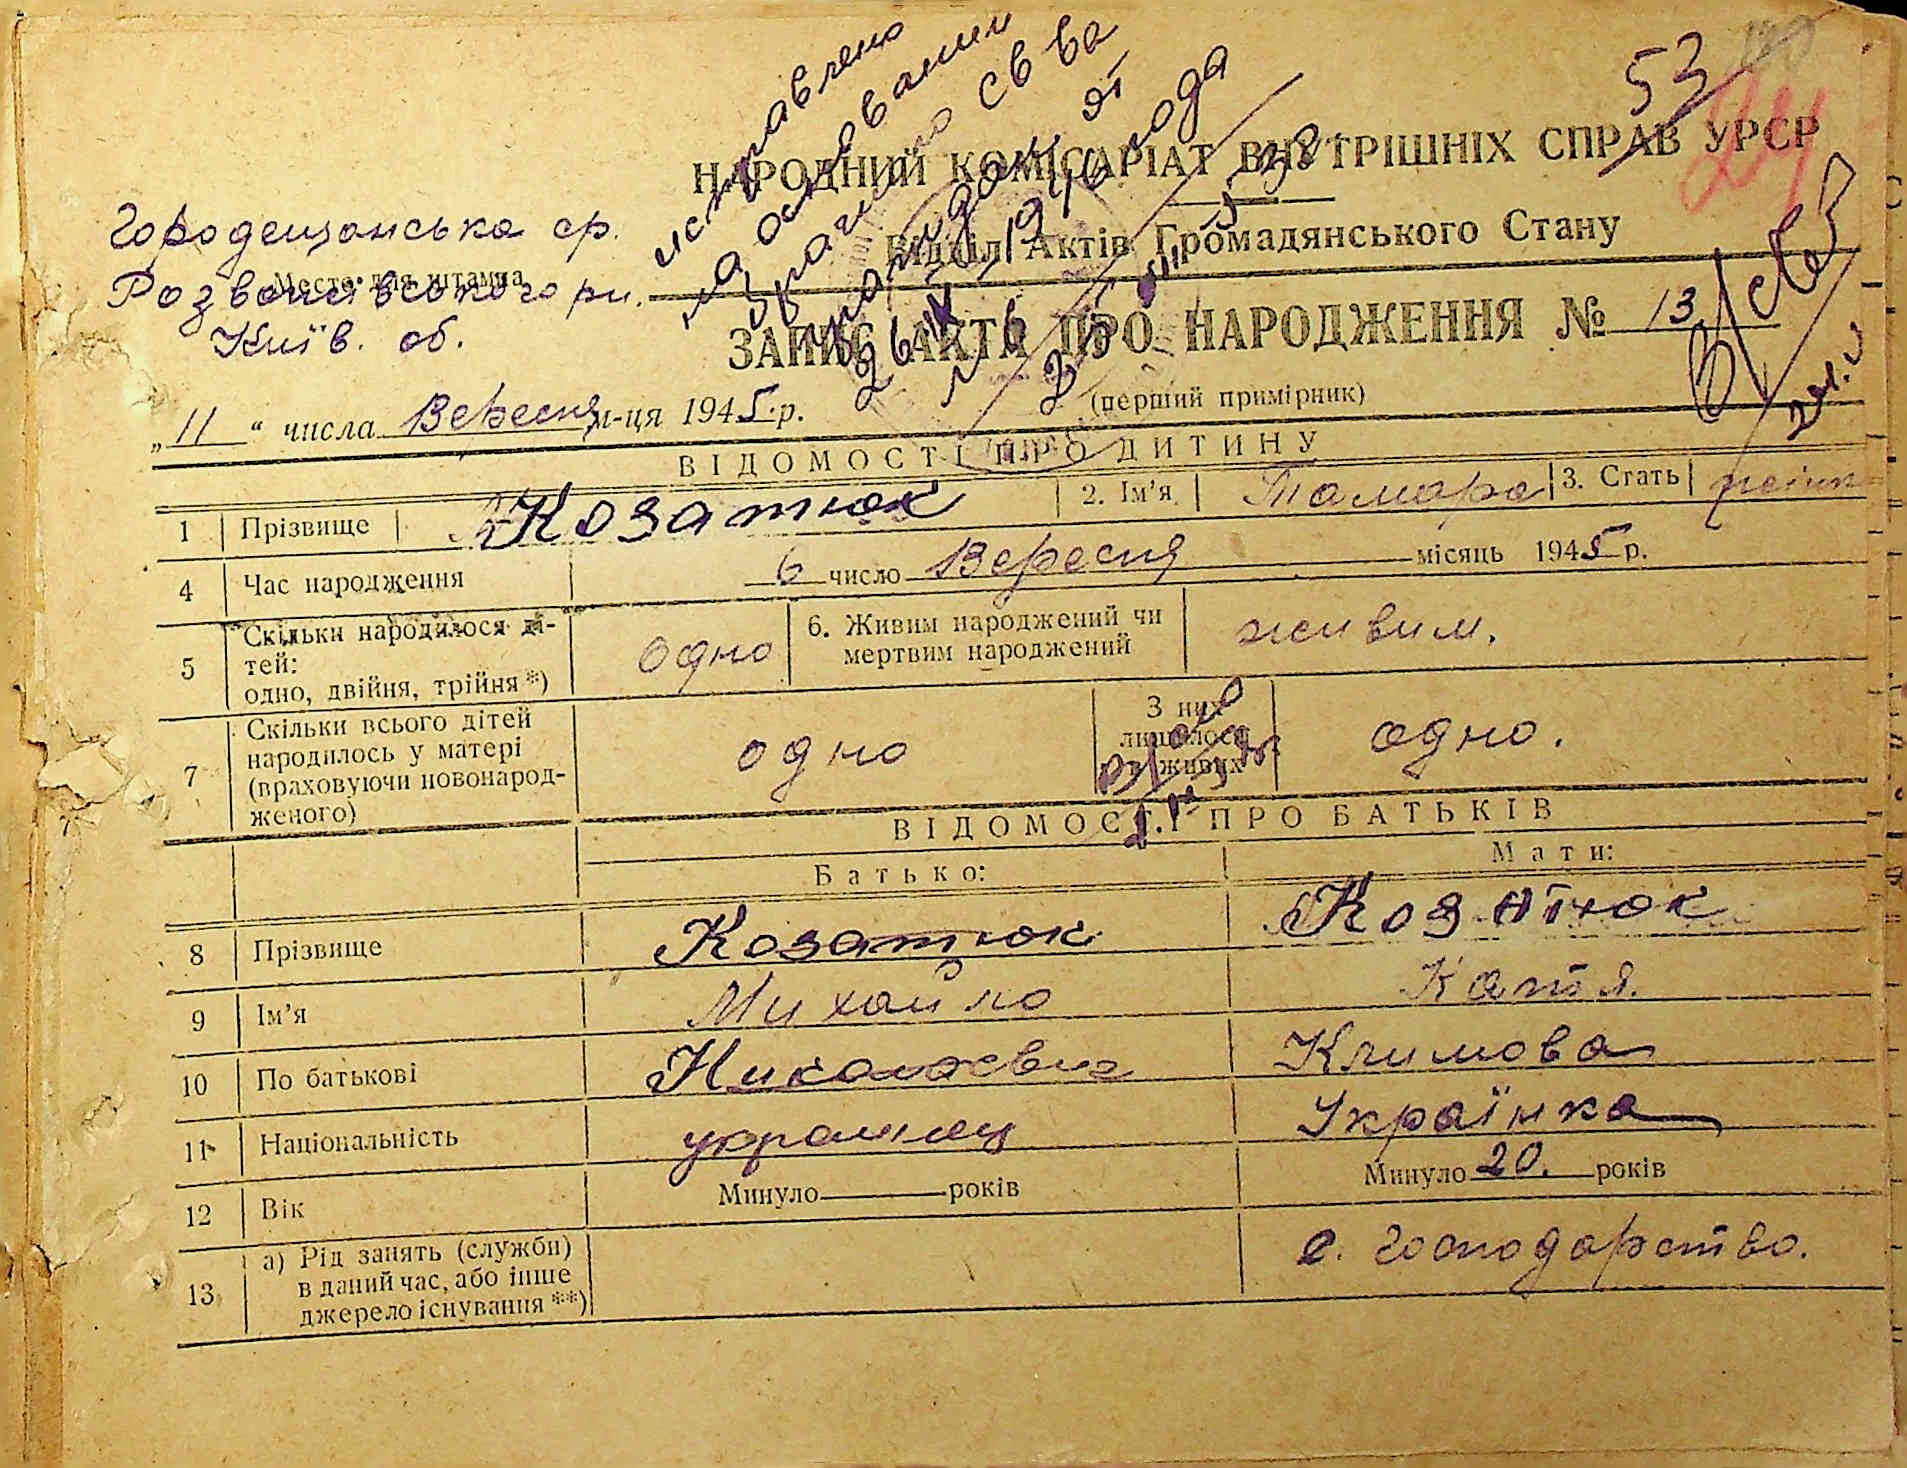 53
НАРОДНИЙ КОМІСАРІАТ ВНУТРІШНІХ СПРАВ УРСР
Відділ Актів Громадянського Стану
исправлено
на основании
св ва
1946 года
Городещанська ср.
Место для штампа
Розважівського рн.
Київ. об.
ЗАПИС АКТА ПРО НАРОДЖЕННЯ № 13
(перший примірник)
„11“ числа Вересня м-ця 1945 р.
ВІДОМОСТІ ПРО ДИТИНУ
1 Прізвище Козатюк 2. Ім’я Тамара 3. Стать
4 Час народження 6 число Вересня місяць 1945 р.
5 Скільки народилося ді-
тей:
одно, двійня, трійня *) одно 6. Живим народжений чи
мертвим народжений живим.
7 Скільки всього дітей
народилось у матері
(враховуючи новонарод-
женого) одно З них
лишилося
в живих одно.
ВІДОМОСТІ ПРО БАТЬКІВ
Батько: Мати:
8 Прізвище Козатюк Козатюк
9 Ім’я Михайло Катя.
10 По батькові Николаевич Климова
11 Національність украинец Українка
12 Вік Минуло років Минуло 20. років
13 а) Рід занять (служби)
в даний час, або інше
джерело існування **) с. господарство.